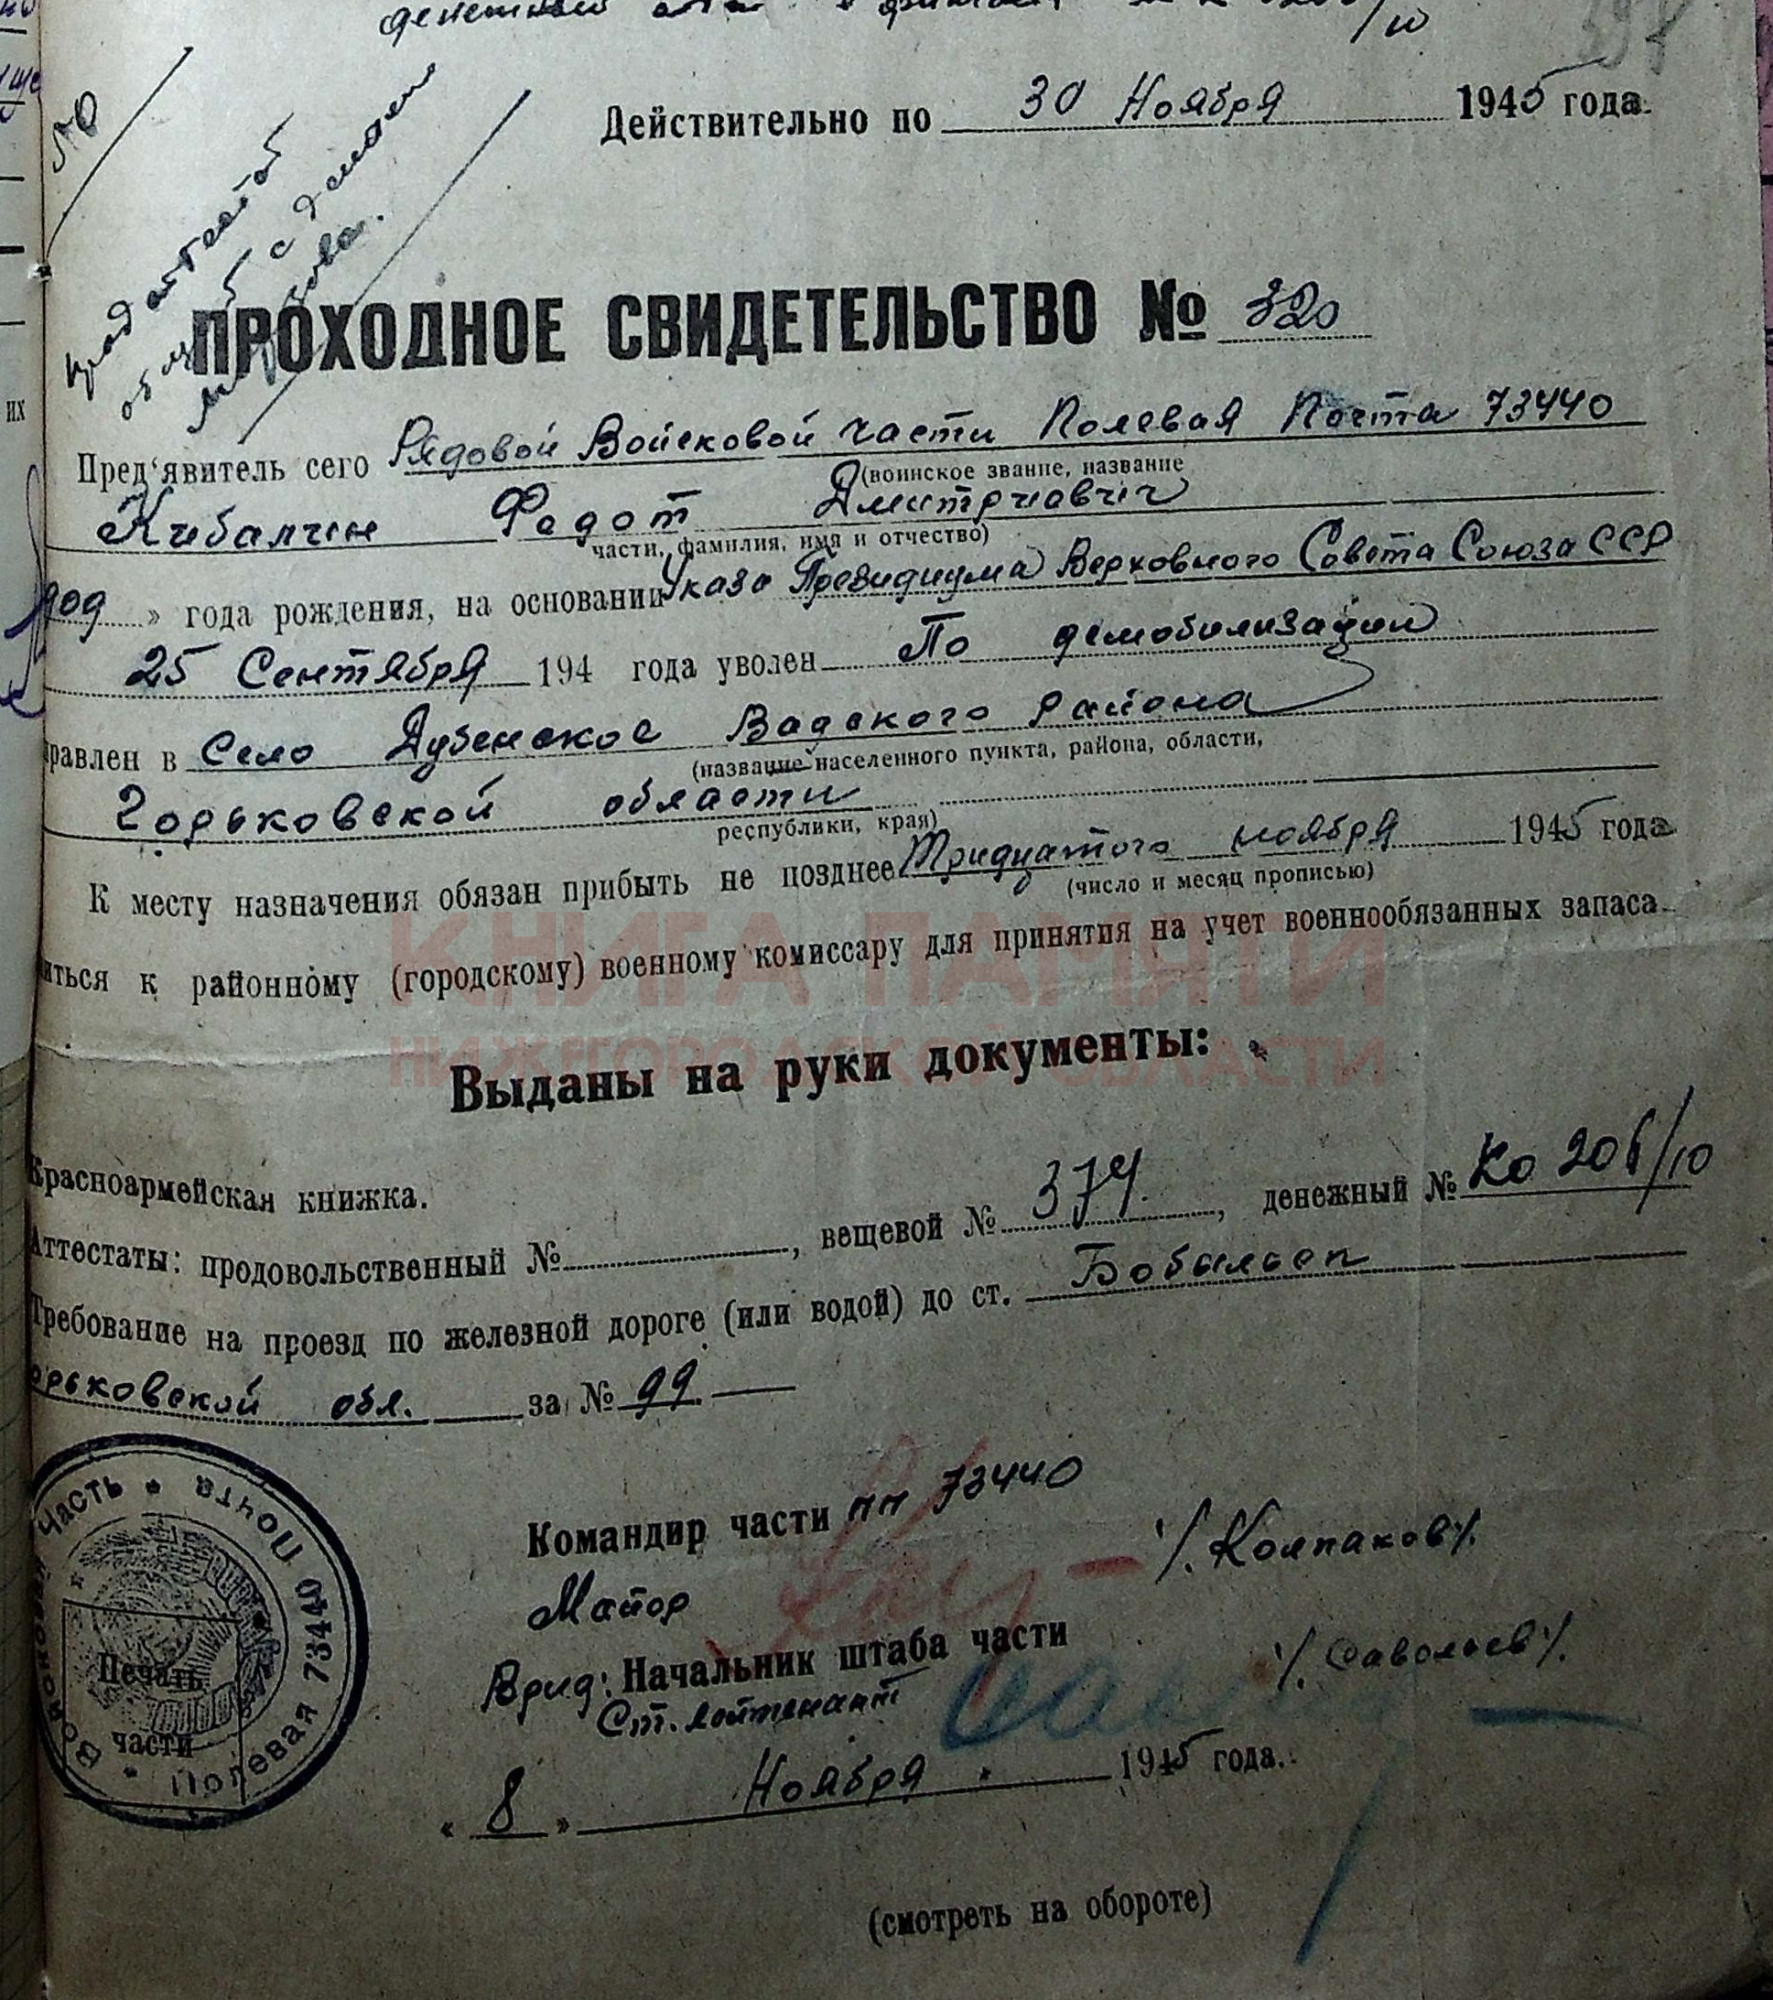 Действительно по 30 Ноября 1945 года.
ПРОХОДНОЕ СВИДЕТЕЛЬСТВО № 320
Пред‘явитель сего Рядовой Войсковой части Полевая Почта 73440
(воинское звание, название
Кибалчин Федот Дмитриевич
части, фамилия, имя и отчество)
» года рождения, на основании Указа Президиума Верховного Совета Союза ССР
25 Сентября 194 года уволен По демобилизации
равлен в Село Дубенское Вадского района
(название населенного пункта, района, области,
Горьковской области
республики, края)
К месту назначения обязан прибыть не позднее Тридцатого ноября 1945 года
(число и месяц прописью)
иться к районному (городскому) военному комиссару для принятия на учет военнообязанных запаса.
КНИГА ПАМЯТИ
НИЖЕГОРОДСКОЙ ОБЛАСТИ
Выданы на руки документы:
Красноармейская книжка.
Аттестаты: продовольственный № , вещевой № 374, денежный № Ко 206/10
Требование на проезд по железной дороге (или водой) до ст.
орьковской обл. за № 99
Командир части пп 73440
Майор /. Колпаков /.
Врид: Начальник штаба части
Ст. лейтенант /. Савельев /.
« 8 » Ноября 1945 года.
Войсковая Часть * Полевая Почта 73440
Печать
части
(смотреть на обороте)